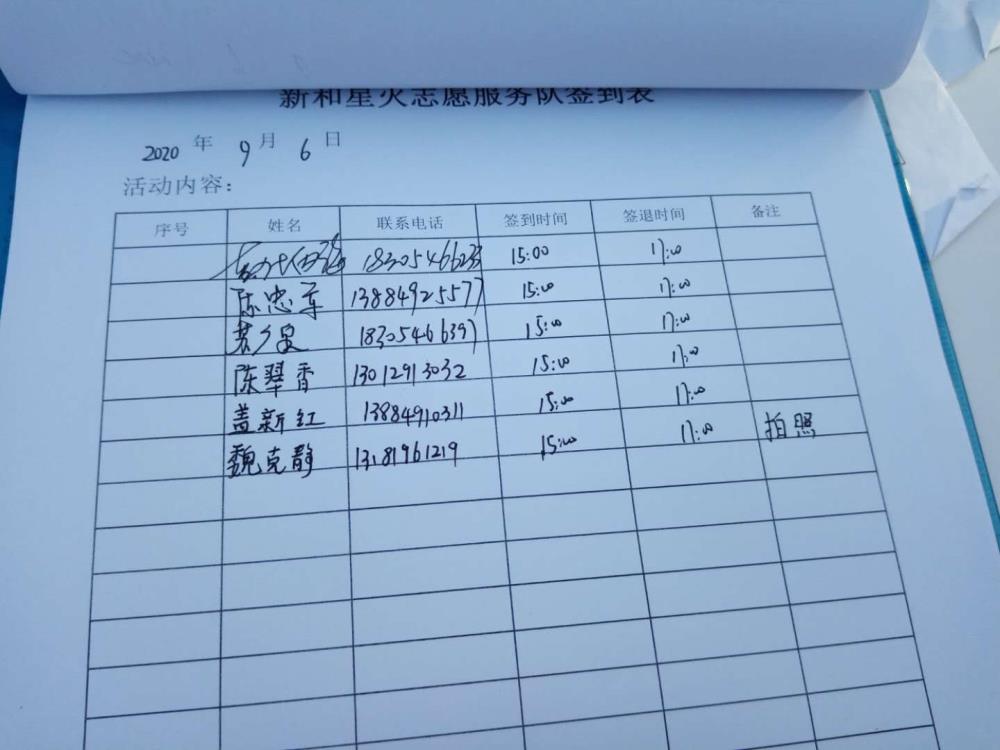 新和星火志愿服务队签到表
2020 年 9 月 6 日
活动内容：
序号 姓名 联系电话 签到时间 签退时间 备注
18305466233 15:00 17:00
陈忠军 13884925577 15:00 17:00
18305466397 15:00 17:00
陈翠香 13012913032 15:00 17:00
盖新红 13884910311 15:00 17:00
魏克静 13181961219 15:00 17:00 拍照